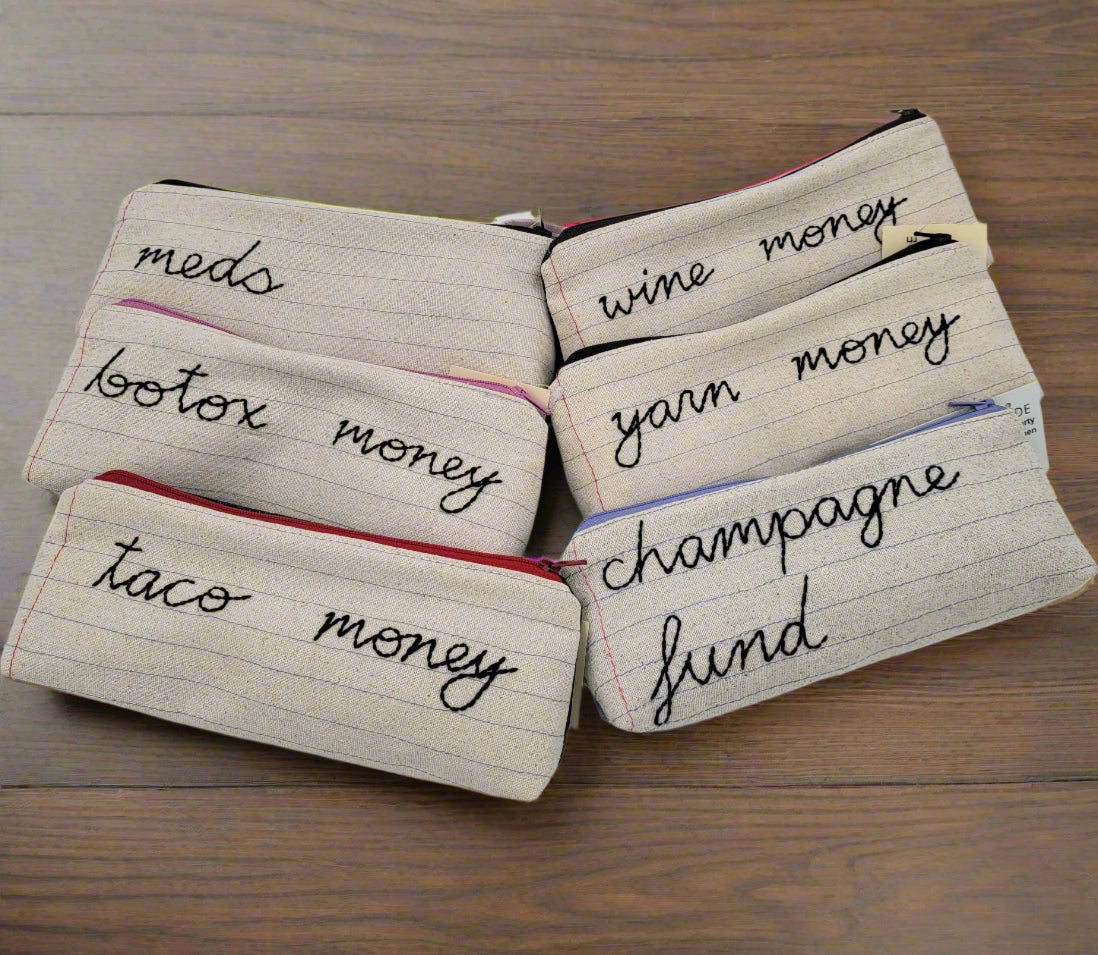 meds
botox money
taco money
wine money
yarn money
champagne
fund